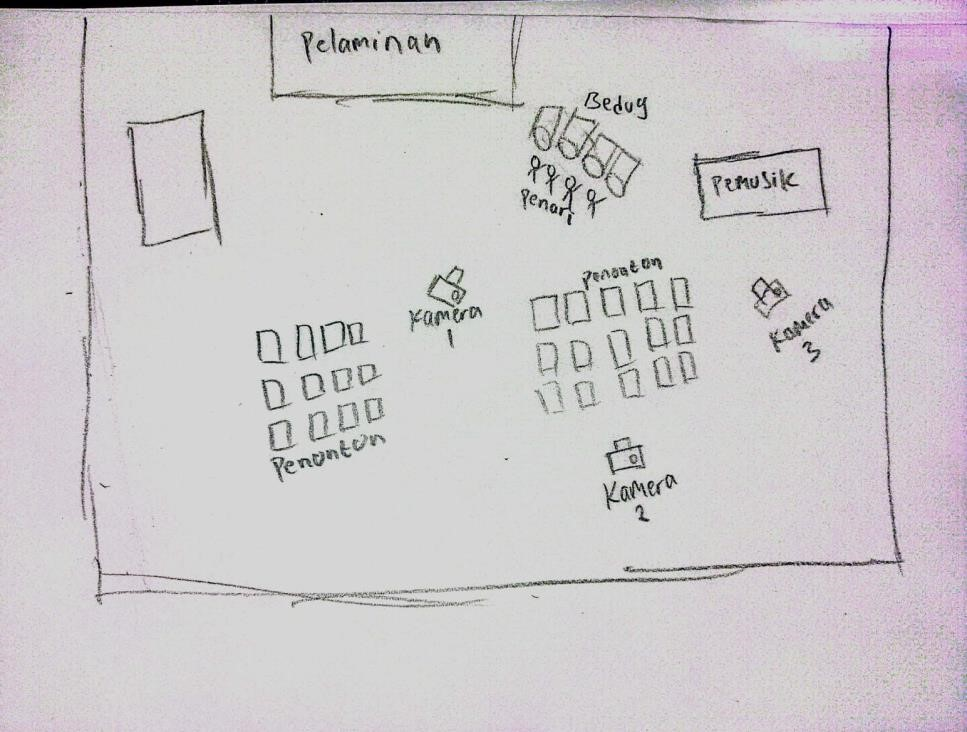 Pelaminan
Bedug
Penari
Pemusik
Penonton
Kamera
1
Kamera
3
Penonton
Kamera
2